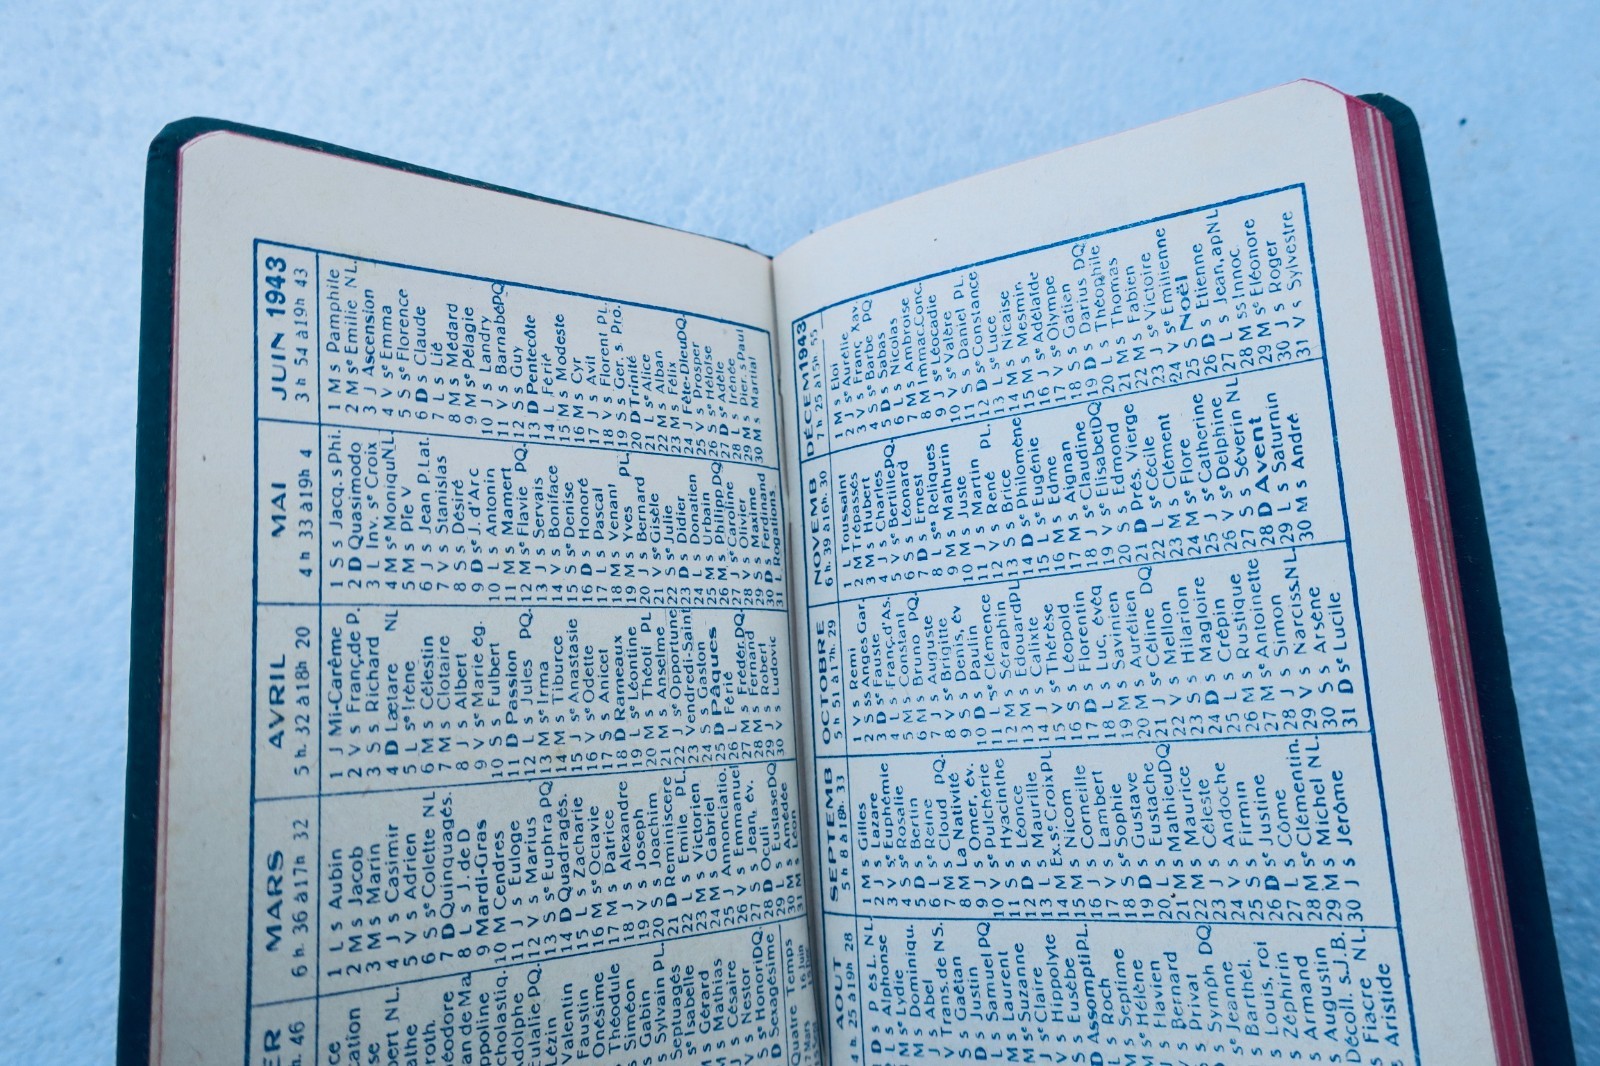 MARS
6 h. 36 à 17h 32
1 L s Aubin
2 M s Jacob
3 M s Marin
4 J s Casimir
5 V s Adrien
6 S sᵉ Colette NL
7 D Quinquagés.
8 L s J. de D
9 Mardi-Gras
10 M Cendres
11 J s Euloge
12 V s Marius PQ
13 S sᵉ Euphra
14 D Quadragés.
15 L s Zacharie
16 M sᵉ Octavie
17 M s Patrice
18 J s Alexandre
19 V s Joseph
20 S s Joachim.
21 D Reminiscere
22 L s Emile PL.
23 M s Victorien
24 M s Gabriel
25 J Annonciatio.
26 V s Emmanuel
27 S s Jean, év.
28 D Oculi
29 L s Eustase DQ
30 M s Amédée
31 M s
AVRIL
5 h. 32 à 18h 20
1 J Mi-Carême
2 V s Franç. de P.
3 S s Richard
4 D Lætare NL
5 L sᵉ Irène
6 M s Célestin
7 M s Clotaire
8 J s Albert
9 V sᵉ Marie ég.
10 S s Fulbert
11 D Passion
12 L s Jules PQ.
13 M sᵉ Irma
14 M s Tiburce
15 J sᵉ Anastasie
16 V sᵉ Odette
17 S s Anicet
18 D Rameaux
19 L sᵉ Léontine
20 M s Théoti PL
21 M s Anselme
22 J sᵉ Opportune
23 Vendredi-Saint
24 S s Gaston
25 D Pâques
26 L Férié
27 M s Frédér. DQ
28 M s Fernand
29 J s Robert
30 V s Ludovic
MAI
4 h 33 à 19h 4
1 S s Jacq. s Phi.
2 D Quasimodo
3 L Inv. sᵉ Croix
4 M sᵉ Moniqu NL.
5 M s PIe V
6 J s Jean P. Lat.
7 V s Stanislas
8 S s Désiré
9 D sᵉ J. d'Arc
10 L s Antonin
11 M s Mamert
12 M sᵉ Flavie PQ.
13 J s Servais
14 V s Boniface
15 S sᵉ Denise
16 D s Honoré
17 L s Pascal
18 M s Venant
19 M s Yves PL
20 J s Bernard
21 V sᵉ Gisèle
22 S sᵉ Julie
23 D s Didier
24 L s Donatien
25 M s Urbain
26 M s Philipp DQ
27 J sᵉ Caroline
28 V s Olivier
29 S s Maxime
30 D s Ferdinand
31 L Rogations
JUIN 1943
3 h 54 à 19h 43
1 M s Pamphile
2 M sᵉ Emilie NL.
3 J Ascension
4 V sᵉ Emma
5 S sᵉ Florence
6 D s Claude
7 L s Lié
8 M s Médard
9 M sᵉ Pélagie
10 J s Landry
11 V s Barnabé PQ
12 S s Guy
13 D Pentecôte
14 L Férié
15 M s Modeste
16 M s Cyr
17 J s Avit
18 V s Florent PL.
19 S s Ger. s. Pro.
20 D Trinité
21 L sᵉ Alice
22 M s Alban
23 M s Félix
24 J Fête-Dieu DQ
25 V s Prosper
26 S sᵉ Héloïse
27 D sᵉ Adèle
28 L s Irénée
29 M s Pier. s Paul
30 M s Martial
AOUT
4 h. 25 à 19h 28
D s P ès L. NL.
s Alphonse
M sᵉ Lydie
M s Dominiqu.
J s Abel
V Trans. de NS.
S s Gaétan
D s Justin
L s Samuel PQ
M s Laurent
M sᵉ Suzanne
J sᵉ Claire
V s Hippolyte
S s Eusèbe
D Assompti PL.
s Roch
s Septime
s Hélène
s Flavien
s Bernard
s Privat
s Symph DQ
sᵉ Jeanne
s Barthél.
s Louis, roi
s Zéphirin
s Armand
s Augustin
Décoll. s. J. B.
s Fiacre NL.
s Aristide
SEPTEMB
5 h 8 à 18h. 33
1 M s Gilles
2 J s Lazare
3 V sᵉ Euphémie
4 S sᵉ Rosalie
5 D s Bertin
6 L sᵉ Reine
7 M s Cloud PQ.
8 M La Nativité
9 J s Omer, év.
10 V sᵉ Pulchérie
11 S s Hyacinthe
12 D s Léonce
13 L s Maurille
14 M Ex. sᵉ Croix PL
15 M s Nicom
16 J s Corneille
17 V s Lambert
18 S sᵉ Sophie
19 D s Gustave
20 L s Eustache
21 M s Mathieu DQ
22 M s Maurice
23 J s Céleste
24 V s Andoche
25 S s Firmin
26 D sᵉ Justine
27 L s Côme
28 M sᵉ Clémentin.
29 M s Michel NL.
30 J s Jerôme
OCTOBRE
5 h 51 à 17h. 29
1 V s Remi
2 S ss Anges Gar.
3 D sᵉ Fauste
4 L s Franç. d'As.
5 M s Constant
6 M s Bruno PQ.
7 J s Auguste
8 V sᵉ Brigitte
9 S s Denis, év
10 D s Paulin
11 L sᵉ Clémence
12 M s Séraphin
13 M s Edouard PL
14 J s Calixte
15 V sᵉ Thérèse
16 S s Léopold
17 D s Florentin
18 L s Luc, évêq
19 M s Savinien
20 M s Aurélien
21 J sᵉ Céline DQ
22 V s Mellon
23 S s Hilarion
24 D s Magloire
25 L s Crépin
26 M s Rustique
27 M sᵉ Antoinette
28 J s Simon
29 V s Narciss. NL
30 S s Arsène
31 D sᵉ Lucile
NOVEMB
6 h. 39 à 16h. 30
1 L Toussaint
2 M Trépassés
3 M s Hubert
4 J s Charles
5 V sᵉ Bertille PQ.
6 S s Léonard
7 D s Ernest
8 L sᵉˢ Reliques
9 M s Mathurin
10 M s Juste
11 J s Martin
12 V s René PL.
13 S s Brice
14 D sᵉ Philomène
15 L sᵉ Eugénie
16 M s Edme
17 M s Aignan
18 J sᵉ Claudine
19 V sᵉ Elisabet DQ
20 S s Edmond
21 D Prés. Vierge
22 L sᵉ Cécile
23 M s Clément
24 M sᵉ Flore
25 J sᵉ Catherine
26 V sᵉ Delphine
27 S s Séverin NL
28 D Avent
29 L s Saturnin
30 M s André
DÉCEM 1943
7 h 25 à 15h 55
1 M s Eloi
2 J sᵉ Aurélie
3 V s Franç Xav.
4 S sᵉ Barbe PQ
5 D s Sabas
6 L s Nicolas
7 M s Ambroise
8 M Immac. Conc.
9 J sᵉ Léocadie
10 V sᵉ Valère
11 S s Daniel PL.
12 D sᵉ Constance
13 L sᵉ Luce
14 M s Nicaise
15 M s Mesmin
16 J sᵉ Adélaïde
17 V sᵉ Olympe
18 S s Gatien
19 D s Darius DQ
20 L s Théophile
21 M s Thomas
22 M s Fabien
23 J sᵉ Victoire
24 V sᵉ Emilienne
25 S Noël
26 D s Etienne
27 L s Jean, ap NL
28 M ss Innoc.
29 M sᵉ Eléonore
30 J s Roger
31 V s Sylvestre